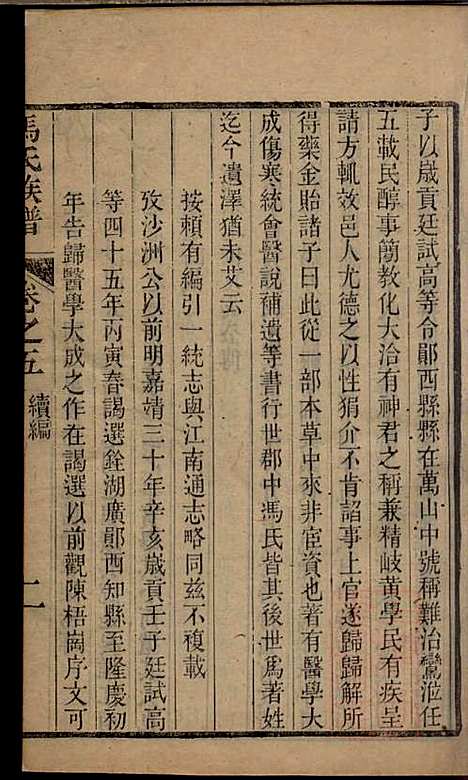 子以歲貢廷試高等令鄖西縣縣在萬山中號稱難治鸞涖任
五載民醇事簡教化大洽有神君之稱兼精岐黃學民有疾呈
請方輒效邑人尤德之以性狷介不肯諂事上官遂歸歸解所
得藥金貽諸子曰此從一部本草中來非宦資也著有醫學大
成傷寒統會醫說補遺等書行世郡中馮氏皆其後世爲著姓
迄今遺澤猶未艾云
按賴有編引一統志與江南通志略同兹不複載
攷沙洲公以前明嘉靖三十年辛亥歲貢壬子廷試高
等四十五年丙寅春謁選銓湖廣鄖西知縣至隆慶初
年告歸醫學大成之作在謁選以前觀陳梧崗序文可
馮氏族譜 卷之五 續編 二